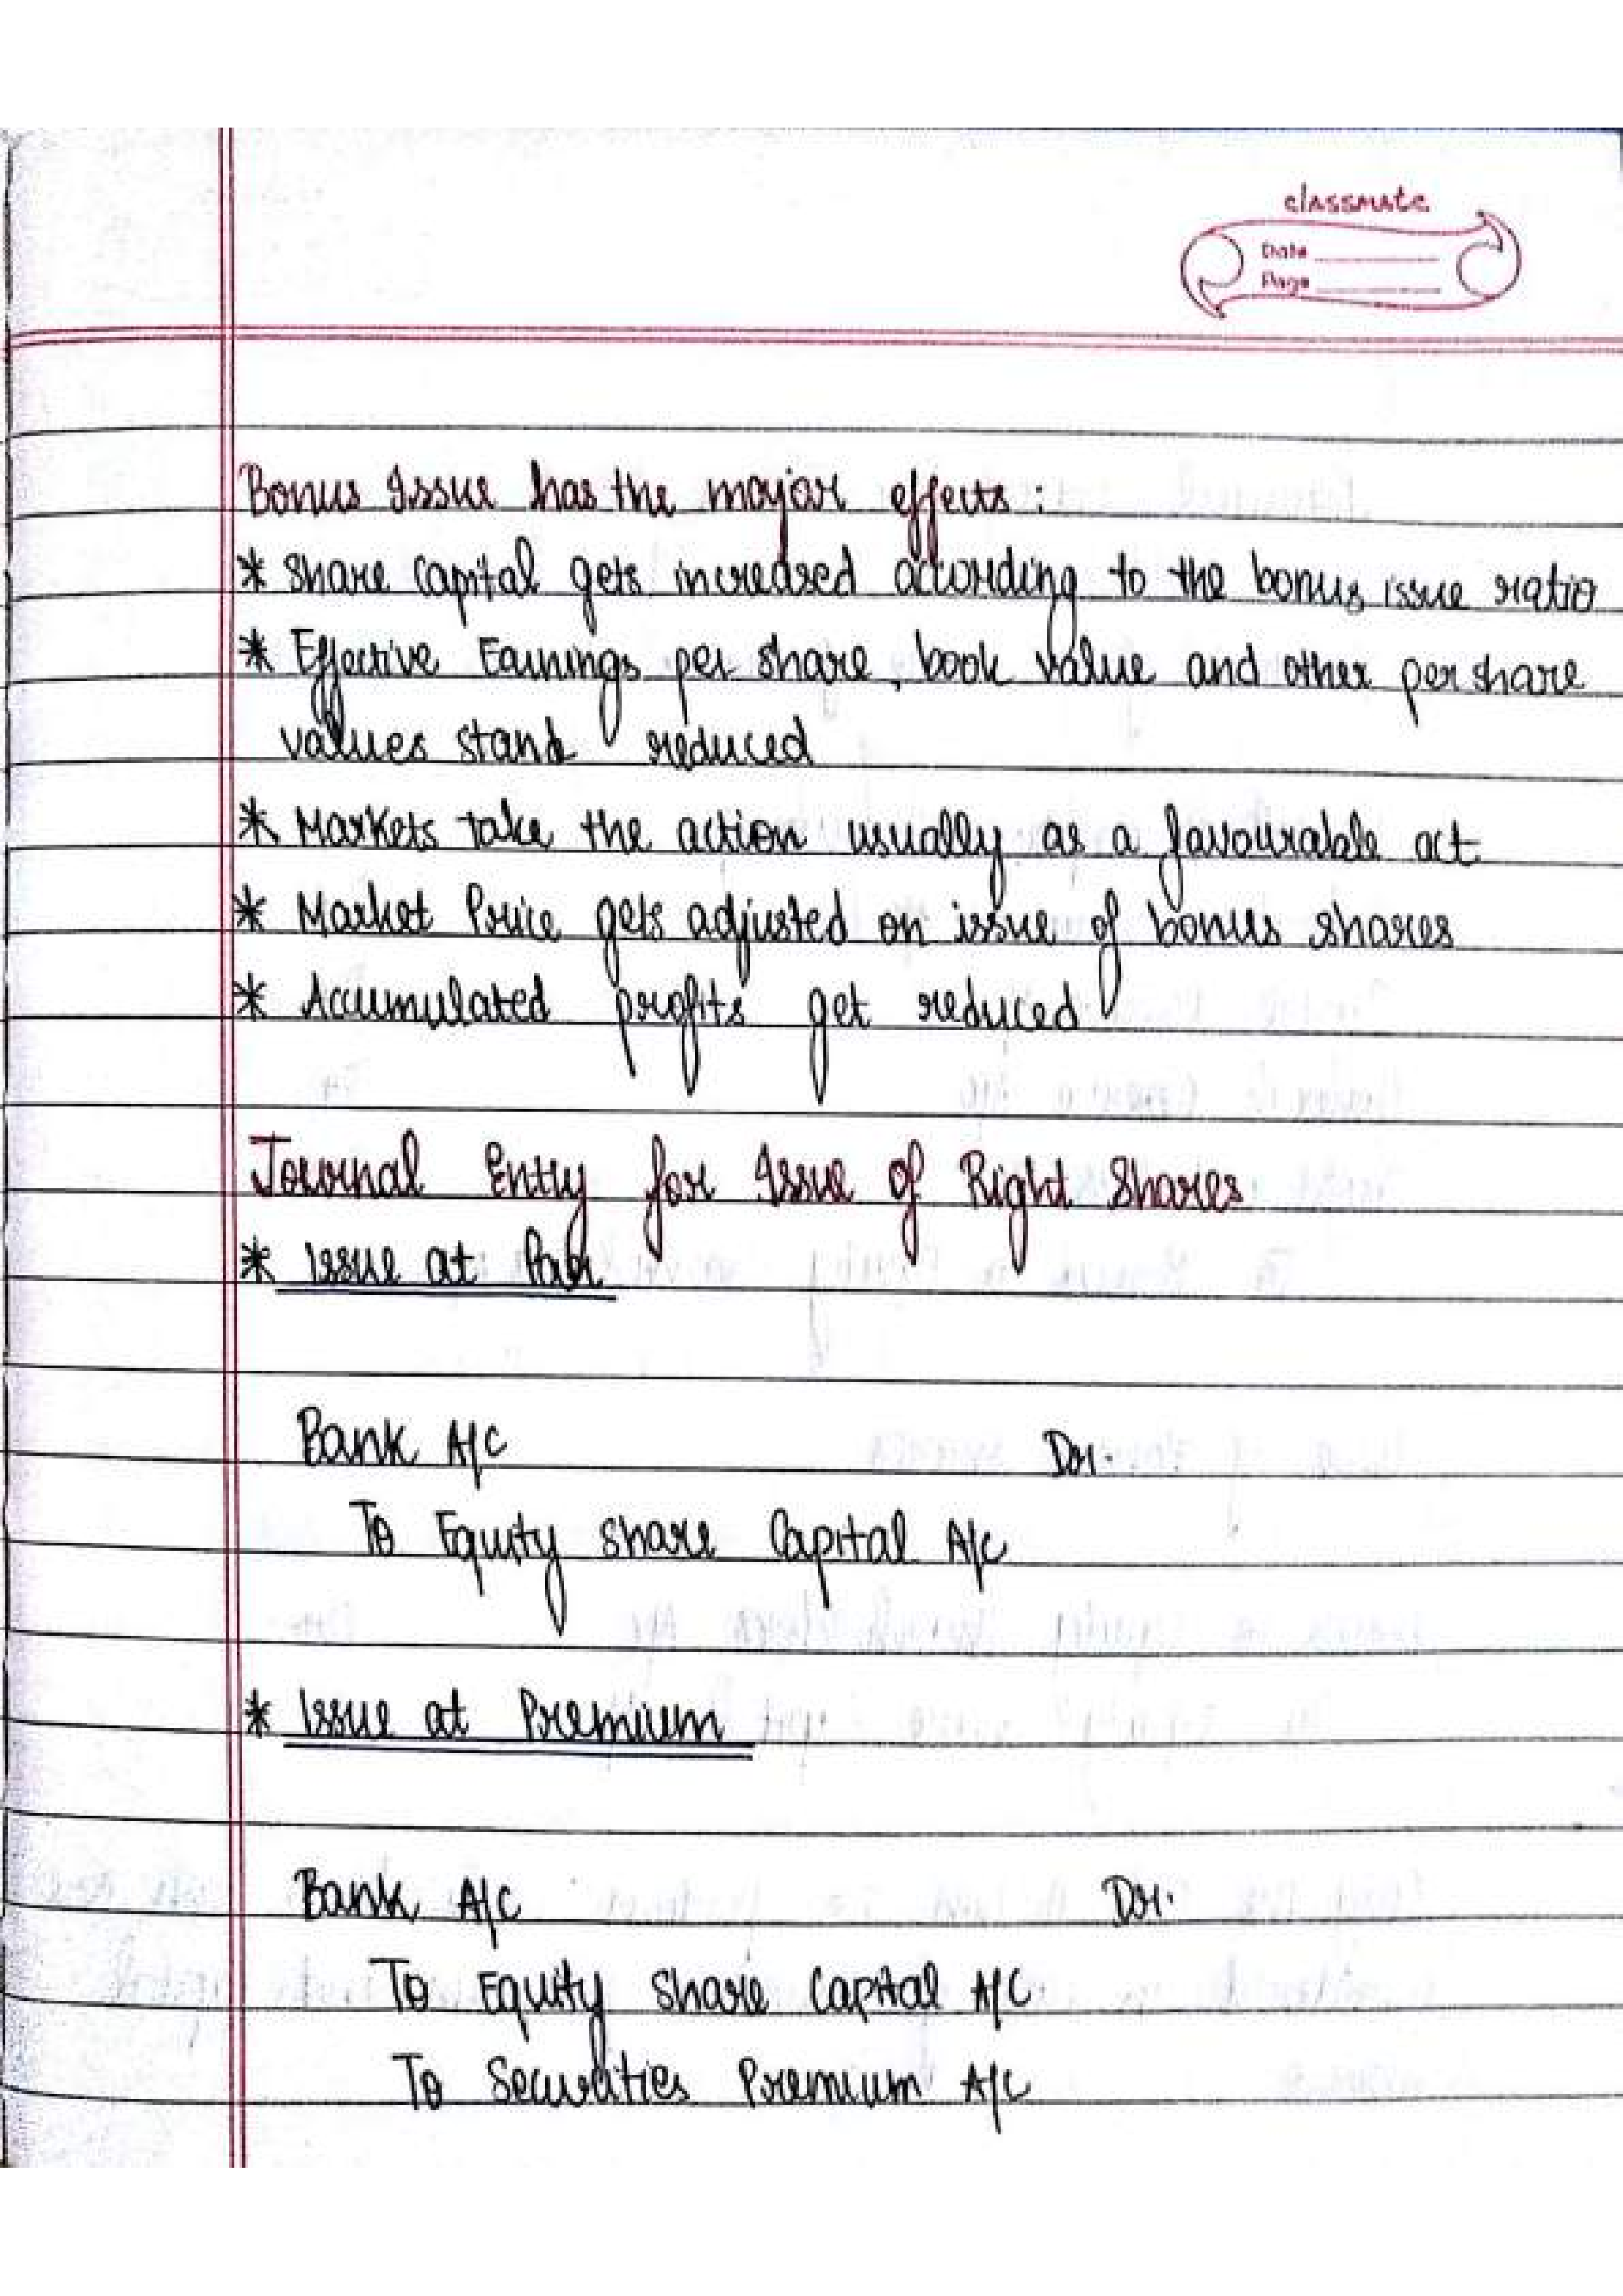 classmate
Date
Page
Bonus Issue has the major effects :
* Share Capital gets increased according to the bonus issue ratio
* Effective Earnings per share, book value and other per share
values stand reduced
* Markets take the action usually as a favourable act.
* Market Price gets adjusted on issue of bonus shares
* Accumulated profits get reduced
Journal Entry for Issue of Right Shares
* Issue at Par
Bank A/c Dr.
To Equity Share Capital A/c
* Issue at Premium
Bank A/c Dr.
To Equity Share Capital A/c
To Securities Premium A/c